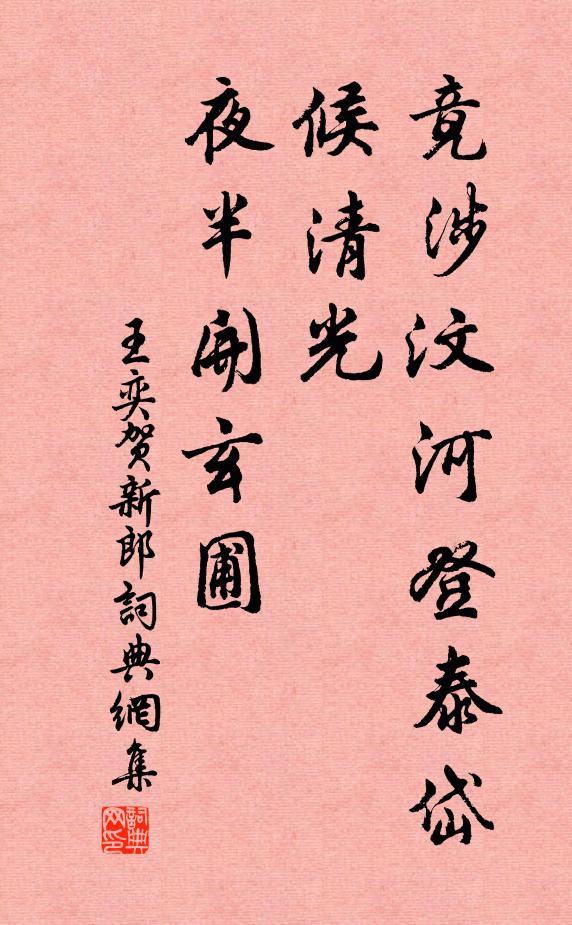 竟涉汶河登泰岱
候清光
夜半開玄圃
王奕賀新郎詞典網集
詞典网印